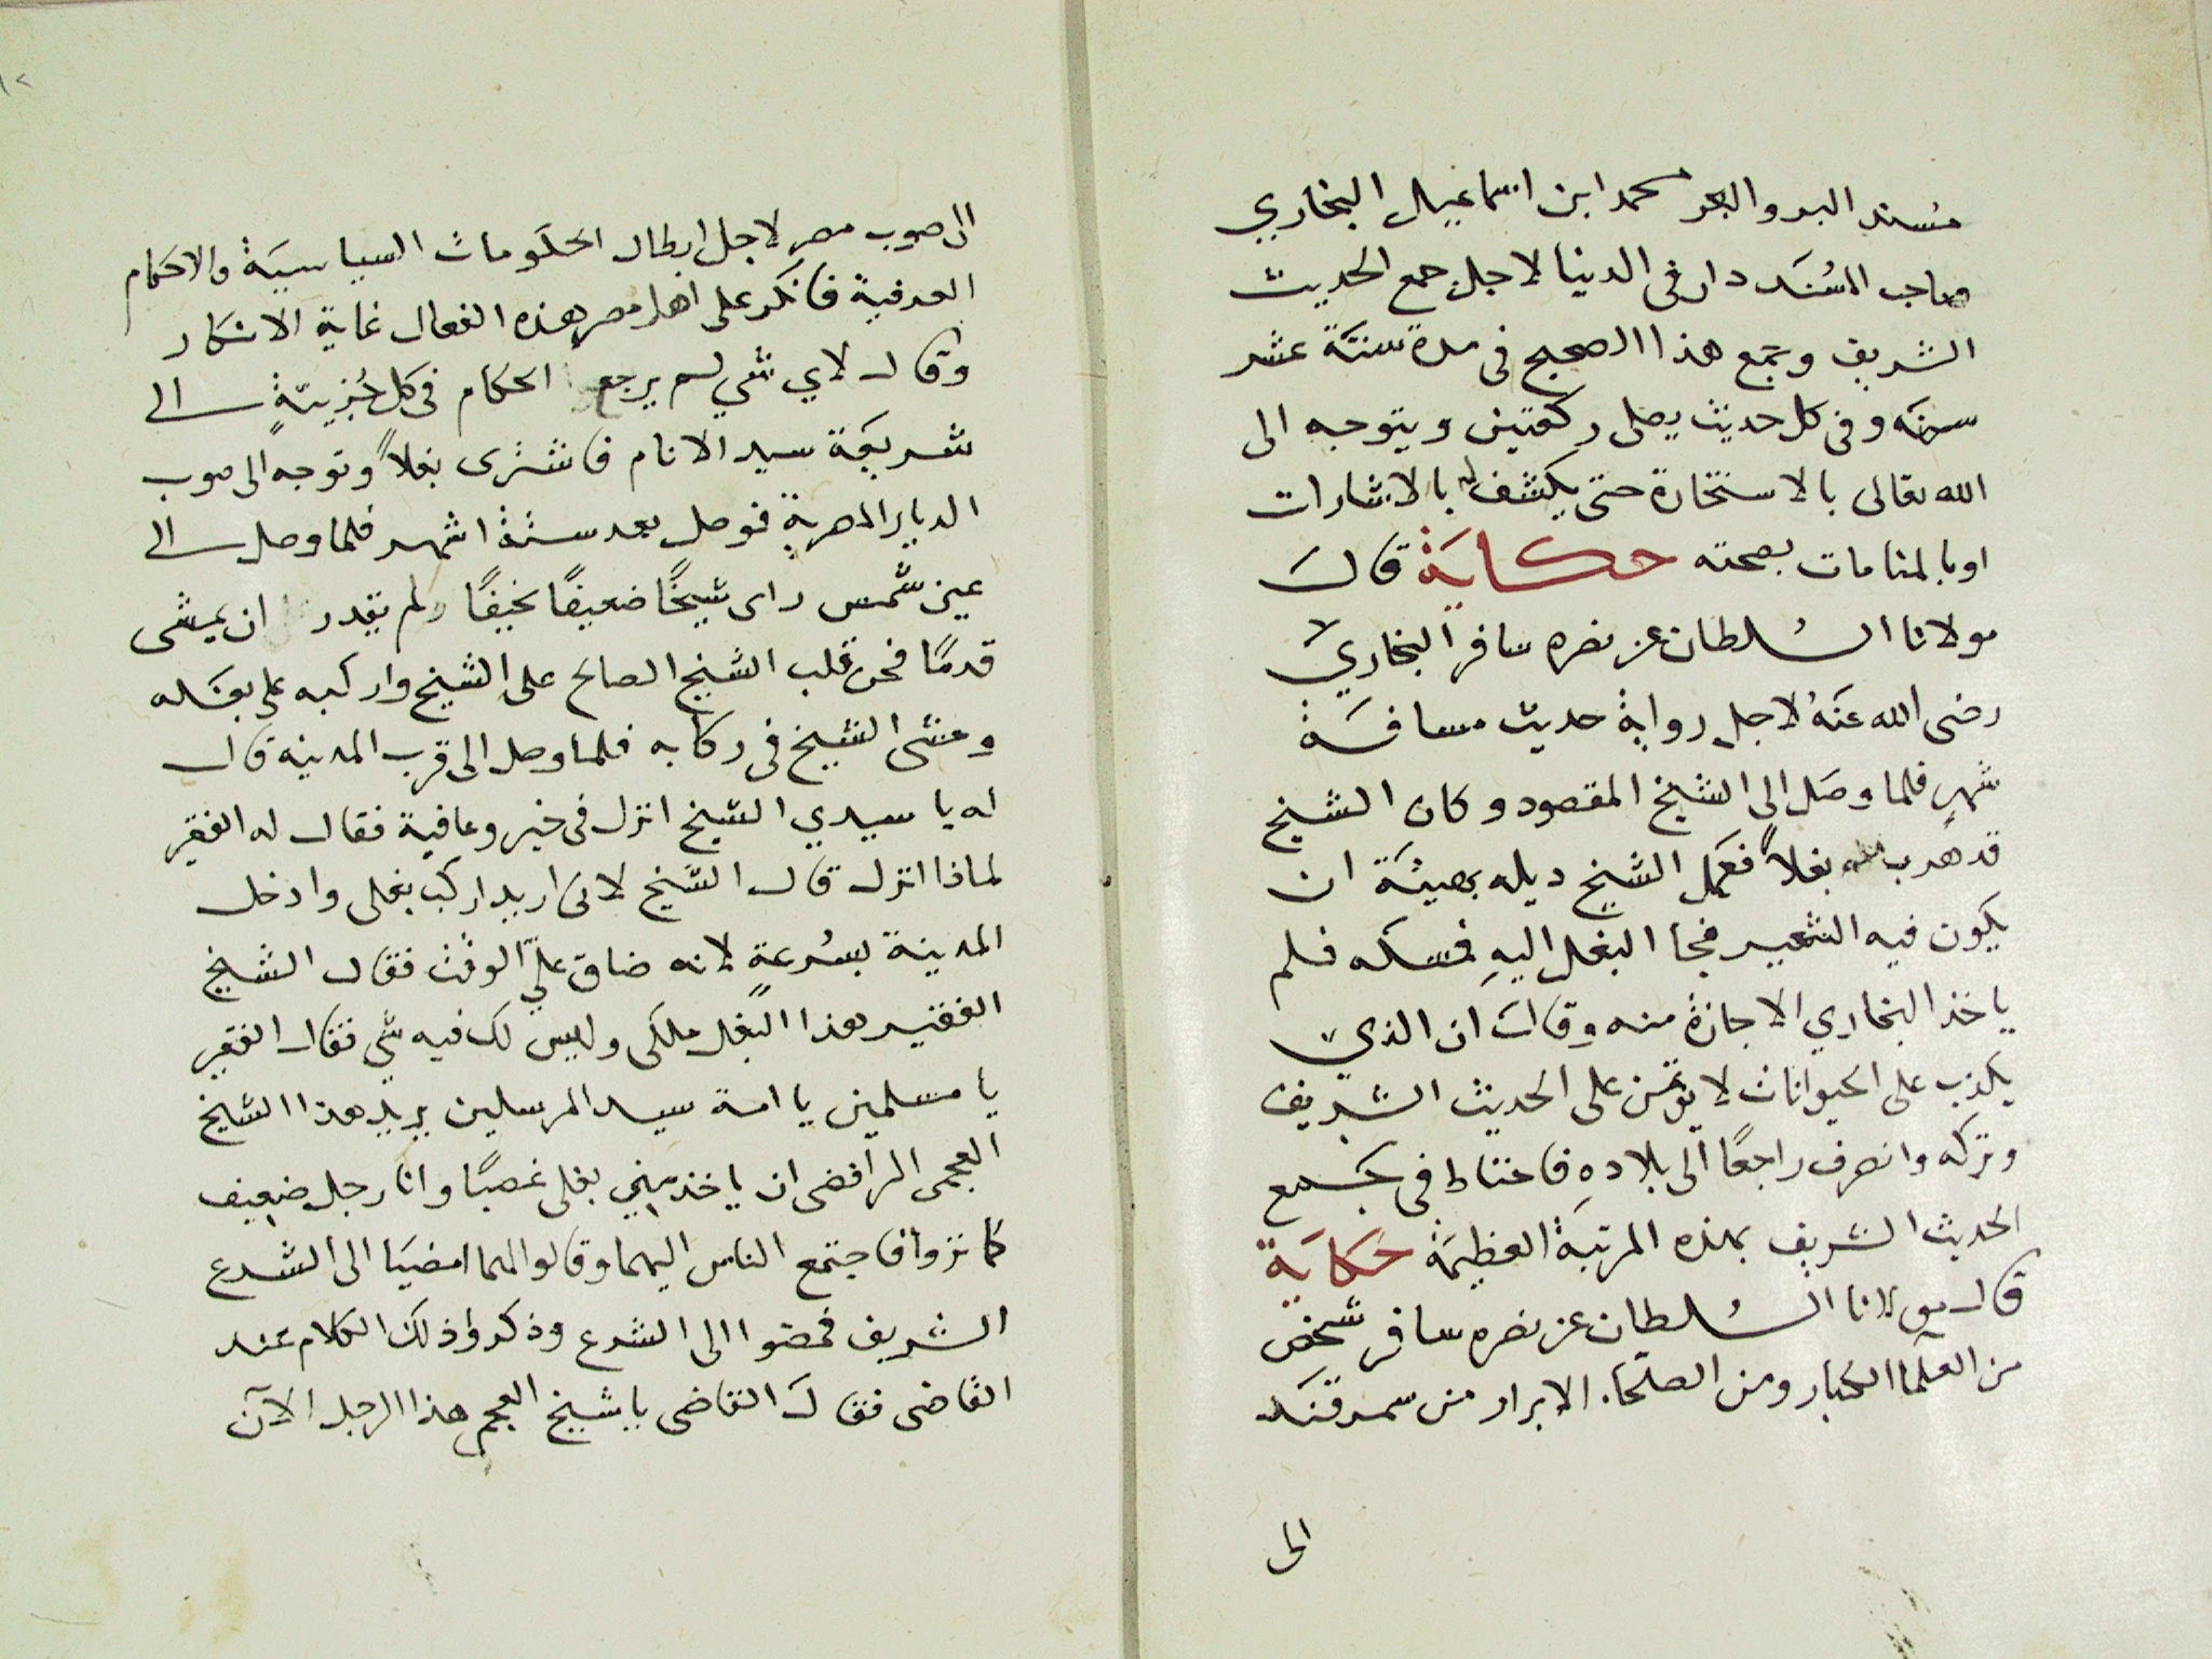 مسند البر والبحر محمد ابن اسماعيل البخاري
صاحب المُسنَد دار فى الدنيا لاجل جمع الحديث
الشريف وجمع هذا الصحيح فى مدة ستة عشر
سنة وفى كل حديث يصلى ركعتين ويتوجه الى
الله تعالى بالاستخارة حتى يكشف له بالاشارات
او بالمنامات بصحته حكاية قال
مولانا السُلطان عز نصره سافر البخاري
رضى الله عنهُ لاجل رواية حديث مسافة
شهرٍ فلما وصَل الى الشيخ المقصود وكان الشيخ
قد هرب له بغلاً فعمل الشيخ ديله بحيثَة ان
يكون فيه الشعير فجا البغل اليهِ فمسكه فلم
ياخذ البخاري الاجازة منه وقال ان الذي
يكذب على الحيوانات لا يؤتمن على الحديث الشريف
وتركه وانصرف راجعًا الى بلادهِ فاحتاط فى جمع
الحديث الشريف بهذه المرتبَة العظيمَة حكَايَة
قال مولانا السُلطان عز نصره سافر شخص
من العلما الكبار ومن الصلحاء الابرار من سمرقند
الى
الى صوب مصر لاجل ابطال الحكومات السياسيَة والاحكام
العرفية فانكر على اهل مصر هذه الفعال غاية الانكار
وقال لاي شي لم يرجع الحكام فى كل جُزييّةٍ الى
شريعَة سيد الانام فاشترى بغلاً وتوجه الى صوب
الديار المصرية فوصل بعد ستة اشهر فلما وصل الى
عين شمس راى شيخًا ضعيفًا نحيفًا ولم يقدر ان يمشى
قدمًا فحن قلب الشيخ الصالح على الشيخ واركبه على بغله
ومشى الشيخ فى ركابه فلما وصل الى قرب المدينة قال
له يا سيدي الشيخ انزل فى خير وعافية فقال له الفقير
لماذا انزل قال الشيخ لانى اريد اركب بغلى وادخل
المدينة بسُرعةٍ لانه ضاق علىّ الوقت فقال الشيخ
الفقير هذا البغل ملكى وليس لك فيه شي فقال الفقير
يا مسلمين يا امة سيد المرسلين يريد هذا الشيخ
العجمى الرافضى ان ياخذ منى بغلى غصبًا وانا رجل ضعيف
كما تروا فاجتمع الناس اليهما وقالوا لهما امضيَا الى الشرع
الشريف فمضوا الى الشرع وذكروا ذلك الكلام عند
القاضى فقال القاضى يا شيخ العجم هذا الرجل الآن